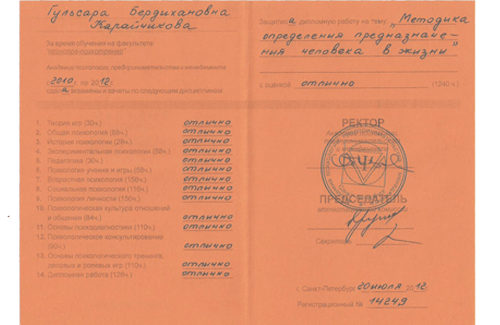 Гульсара Бердихановна
Карайчикова
За время обучения на факультете
Академии психологии, предпринимательства и менеджмента
с 2010 г. по 2012 г.
сдала экзамены и зачеты по следующим дисциплинам:
1. Теория игр (30ч.) отлично
2. Общая психология (88ч.) отлично
3. История психологии (28ч.) отлично
4. Экспериментальная психология (88ч.) отлично
5. Педагогика (30ч.) отлично
6. Психология учения и игры (58ч.) отлично
7. Возрастная психология (150ч.) отлично
8. Социальная психология (118ч.) отлично
9. Психология личности (158ч.) отлично
10. Психологическая культура отношений
и общения (84ч.) отлично
11. Основы психодиагностики (110ч.) отлично
12. Психологическое консультирование
(93ч.) отлично
13. Основы психологического тренинга,
деловых и ролевых игр (110ч.) отлично
14. Дипломная работа (128ч.) отлично
Защитила дипломную работу на тему: „Методика
определения предназначе-
ния человека в жизни"
с оценкой отлично (1240 ч.)
РЕКТОР
ПРЕДСЕДАТЕЛЬ
аттестационной комиссии
Секретарь
г. Санкт-Петербург 20 июля 2012г.
Регистрационный № 14249